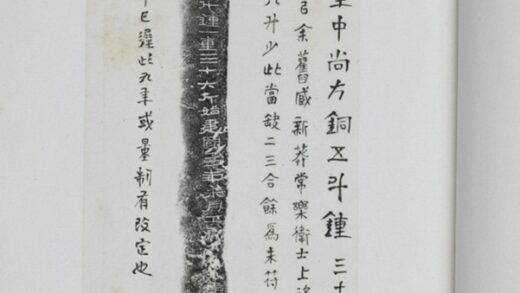 中尚方銅五斗鍾 三十
余舊藏新莽常樂衛士上
升少此當缺二三合餘為未符
鍾一重三十六斤始建國
已遲此九年或量制有改定也